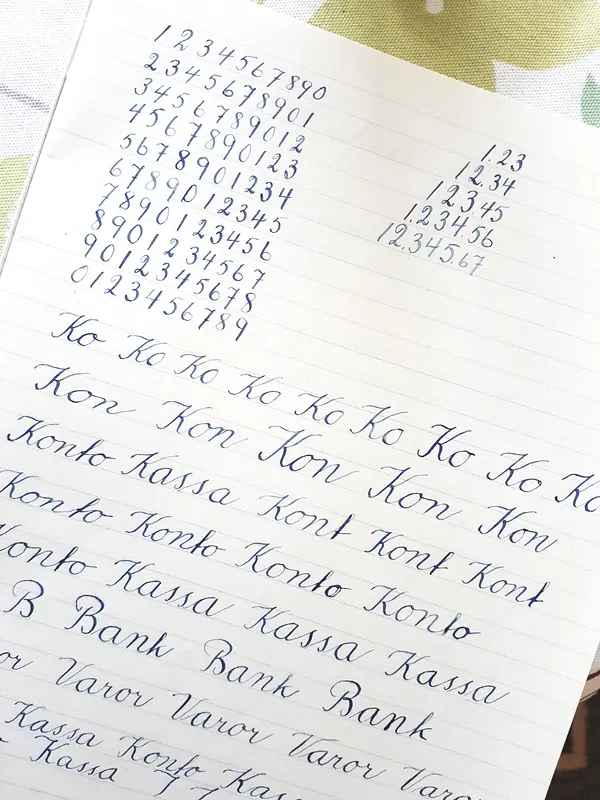 1 2 3 4 5 6 7 8 9 0
2 3 4 5 6 7 8 9 0 1
3 4 5 6 7 8 9 0 1 2
4 5 6 7 8 9 0 1 2 3
5 6 7 8 9 0 1 2 3 4
6 7 8 9 0 1 2 3 4 5
7 8 9 0 1 2 3 4 5 6
8 9 0 1 2 3 4 5 6 7
9 0 1 2 3 4 5 6 7 8
0 1 2 3 4 5 6 7 8 9
1.23
12.34
123.45
1.234.56
12.345.67
Ko Ko Ko Ko Ko Ko Ko Ko Ko
Kon Kon Kon Kon Kon
Konto Kassa Kont Kont Kont
Konto Konto Konto Konto
Konto Kassa Kassa Kassa
B Bank Bank Bank
or Varor Varor Varor Varor
Kassa Konto Kas
Kassa